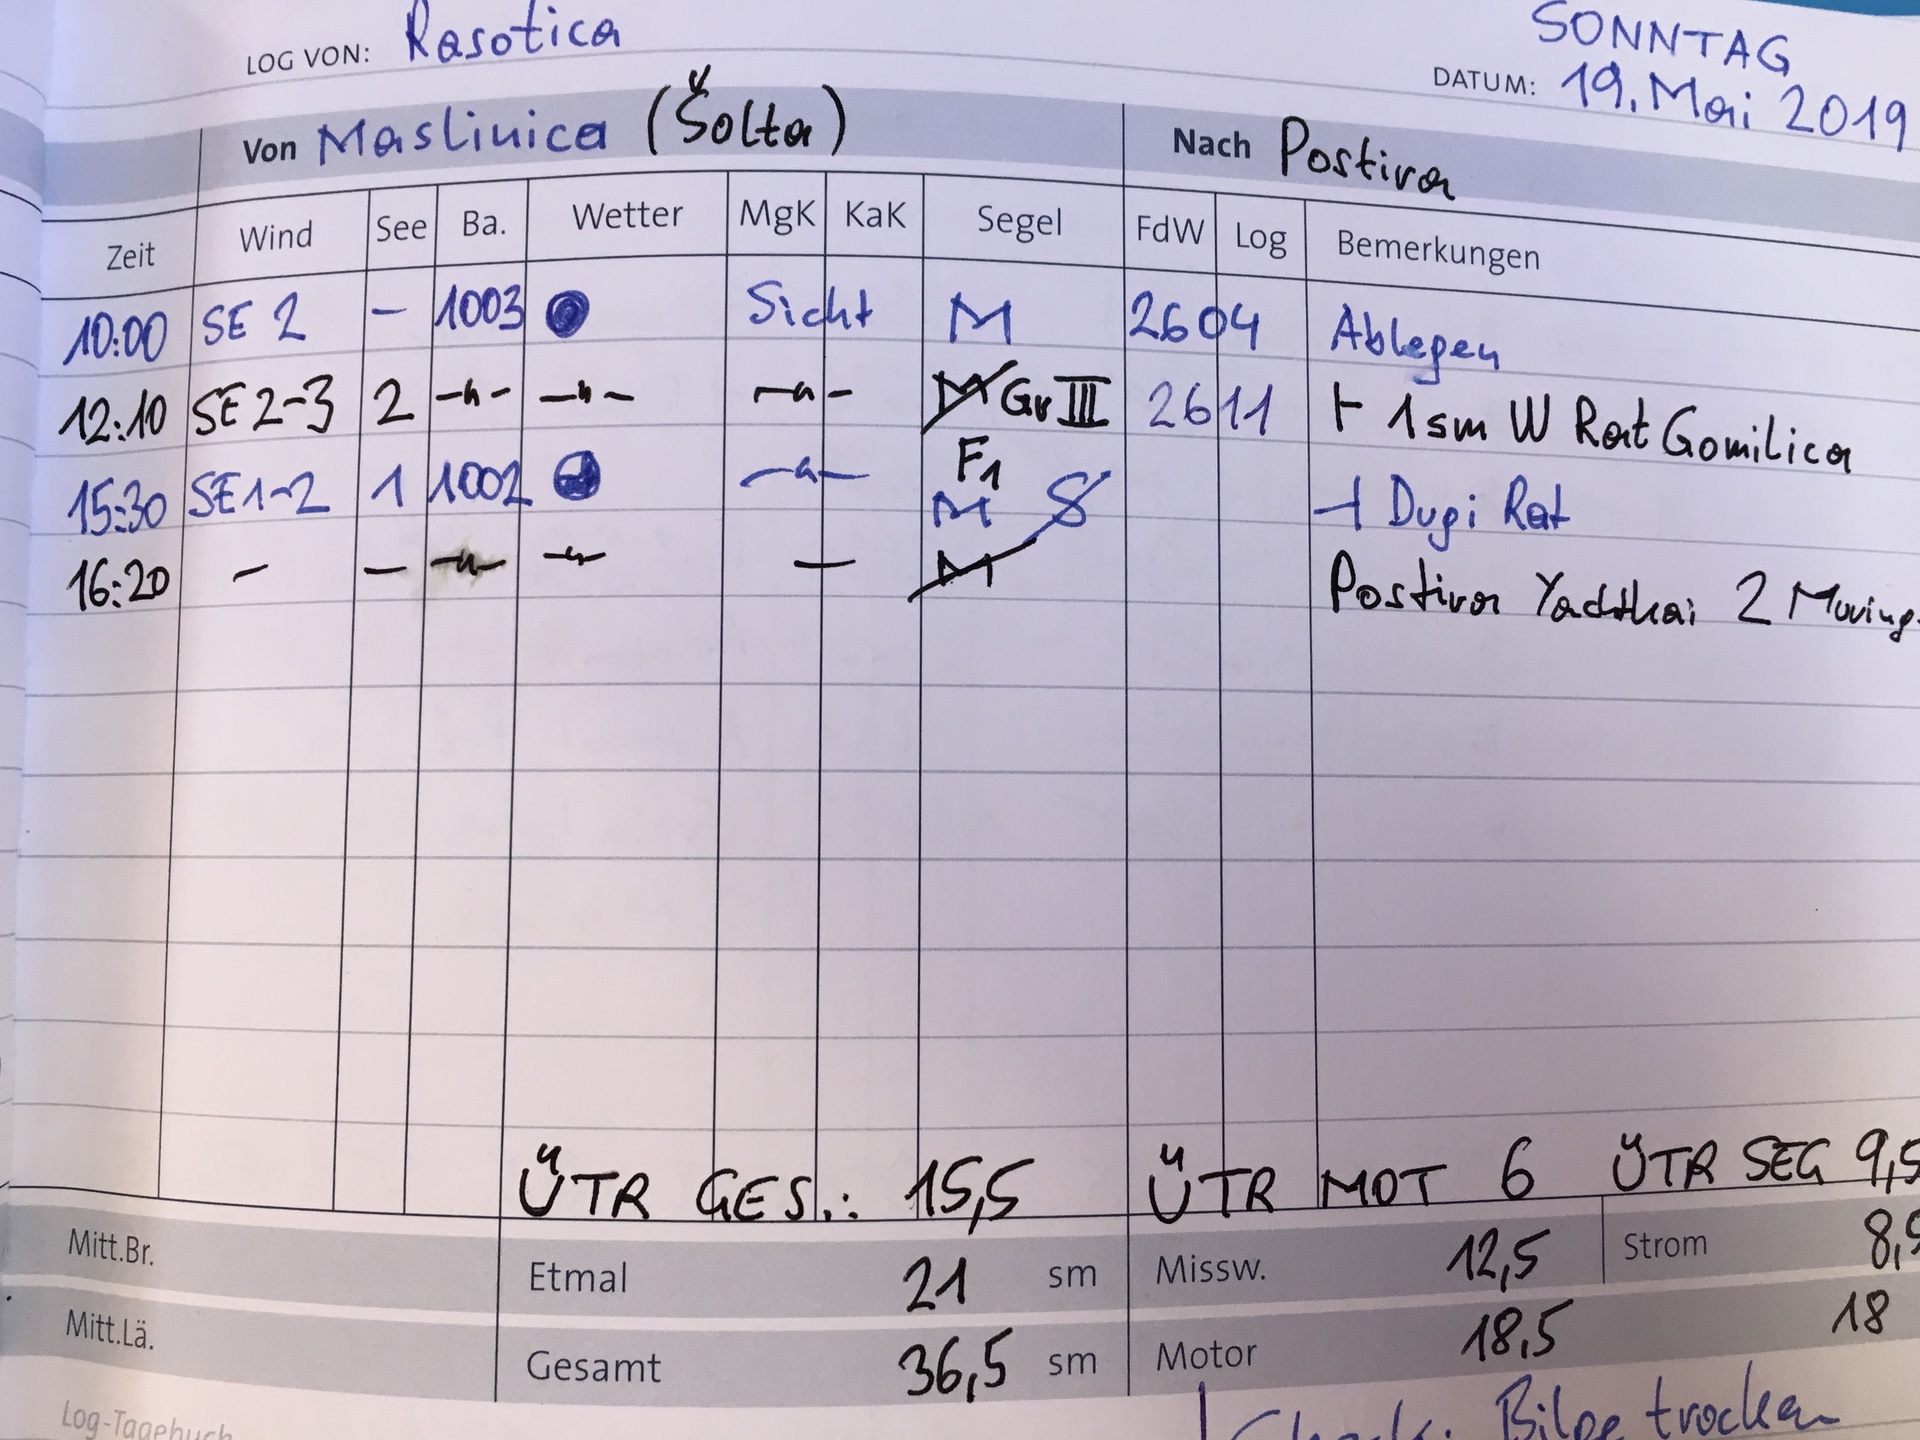 SONNTAG
LOG VON: Rasotica DATUM: 19. Mai 2019
Von Maslinica (Šolta) Nach Postira
Zeit Wind See Ba. Wetter MgK KaK Segel FdW Log Bemerkungen
10:00 SE 2 - 1003 Sicht M 2604 Ablegen
12:10 SE 2-3 2 -"- -"- -"- M Gr III 2611 ⊢ 1 sm W Rat Gomilica
F1
15:30 SE 1-2 1 1002 -"- M 8 ⊣ Dugi Rat
16:20 - - -"- -"- - M Postira Yachtkai 2 Muring.
ÜTR GES.: 15,5 ÜTR MOT 6 ÜTR SEG 9,5
Mitt.Br. Etmal 21 sm Missw. 12,5 Strom 8,5
Mitt.Lä. Gesamt 36,5 sm Motor 18,5 18
Log-Tagebuch Bilge trocken